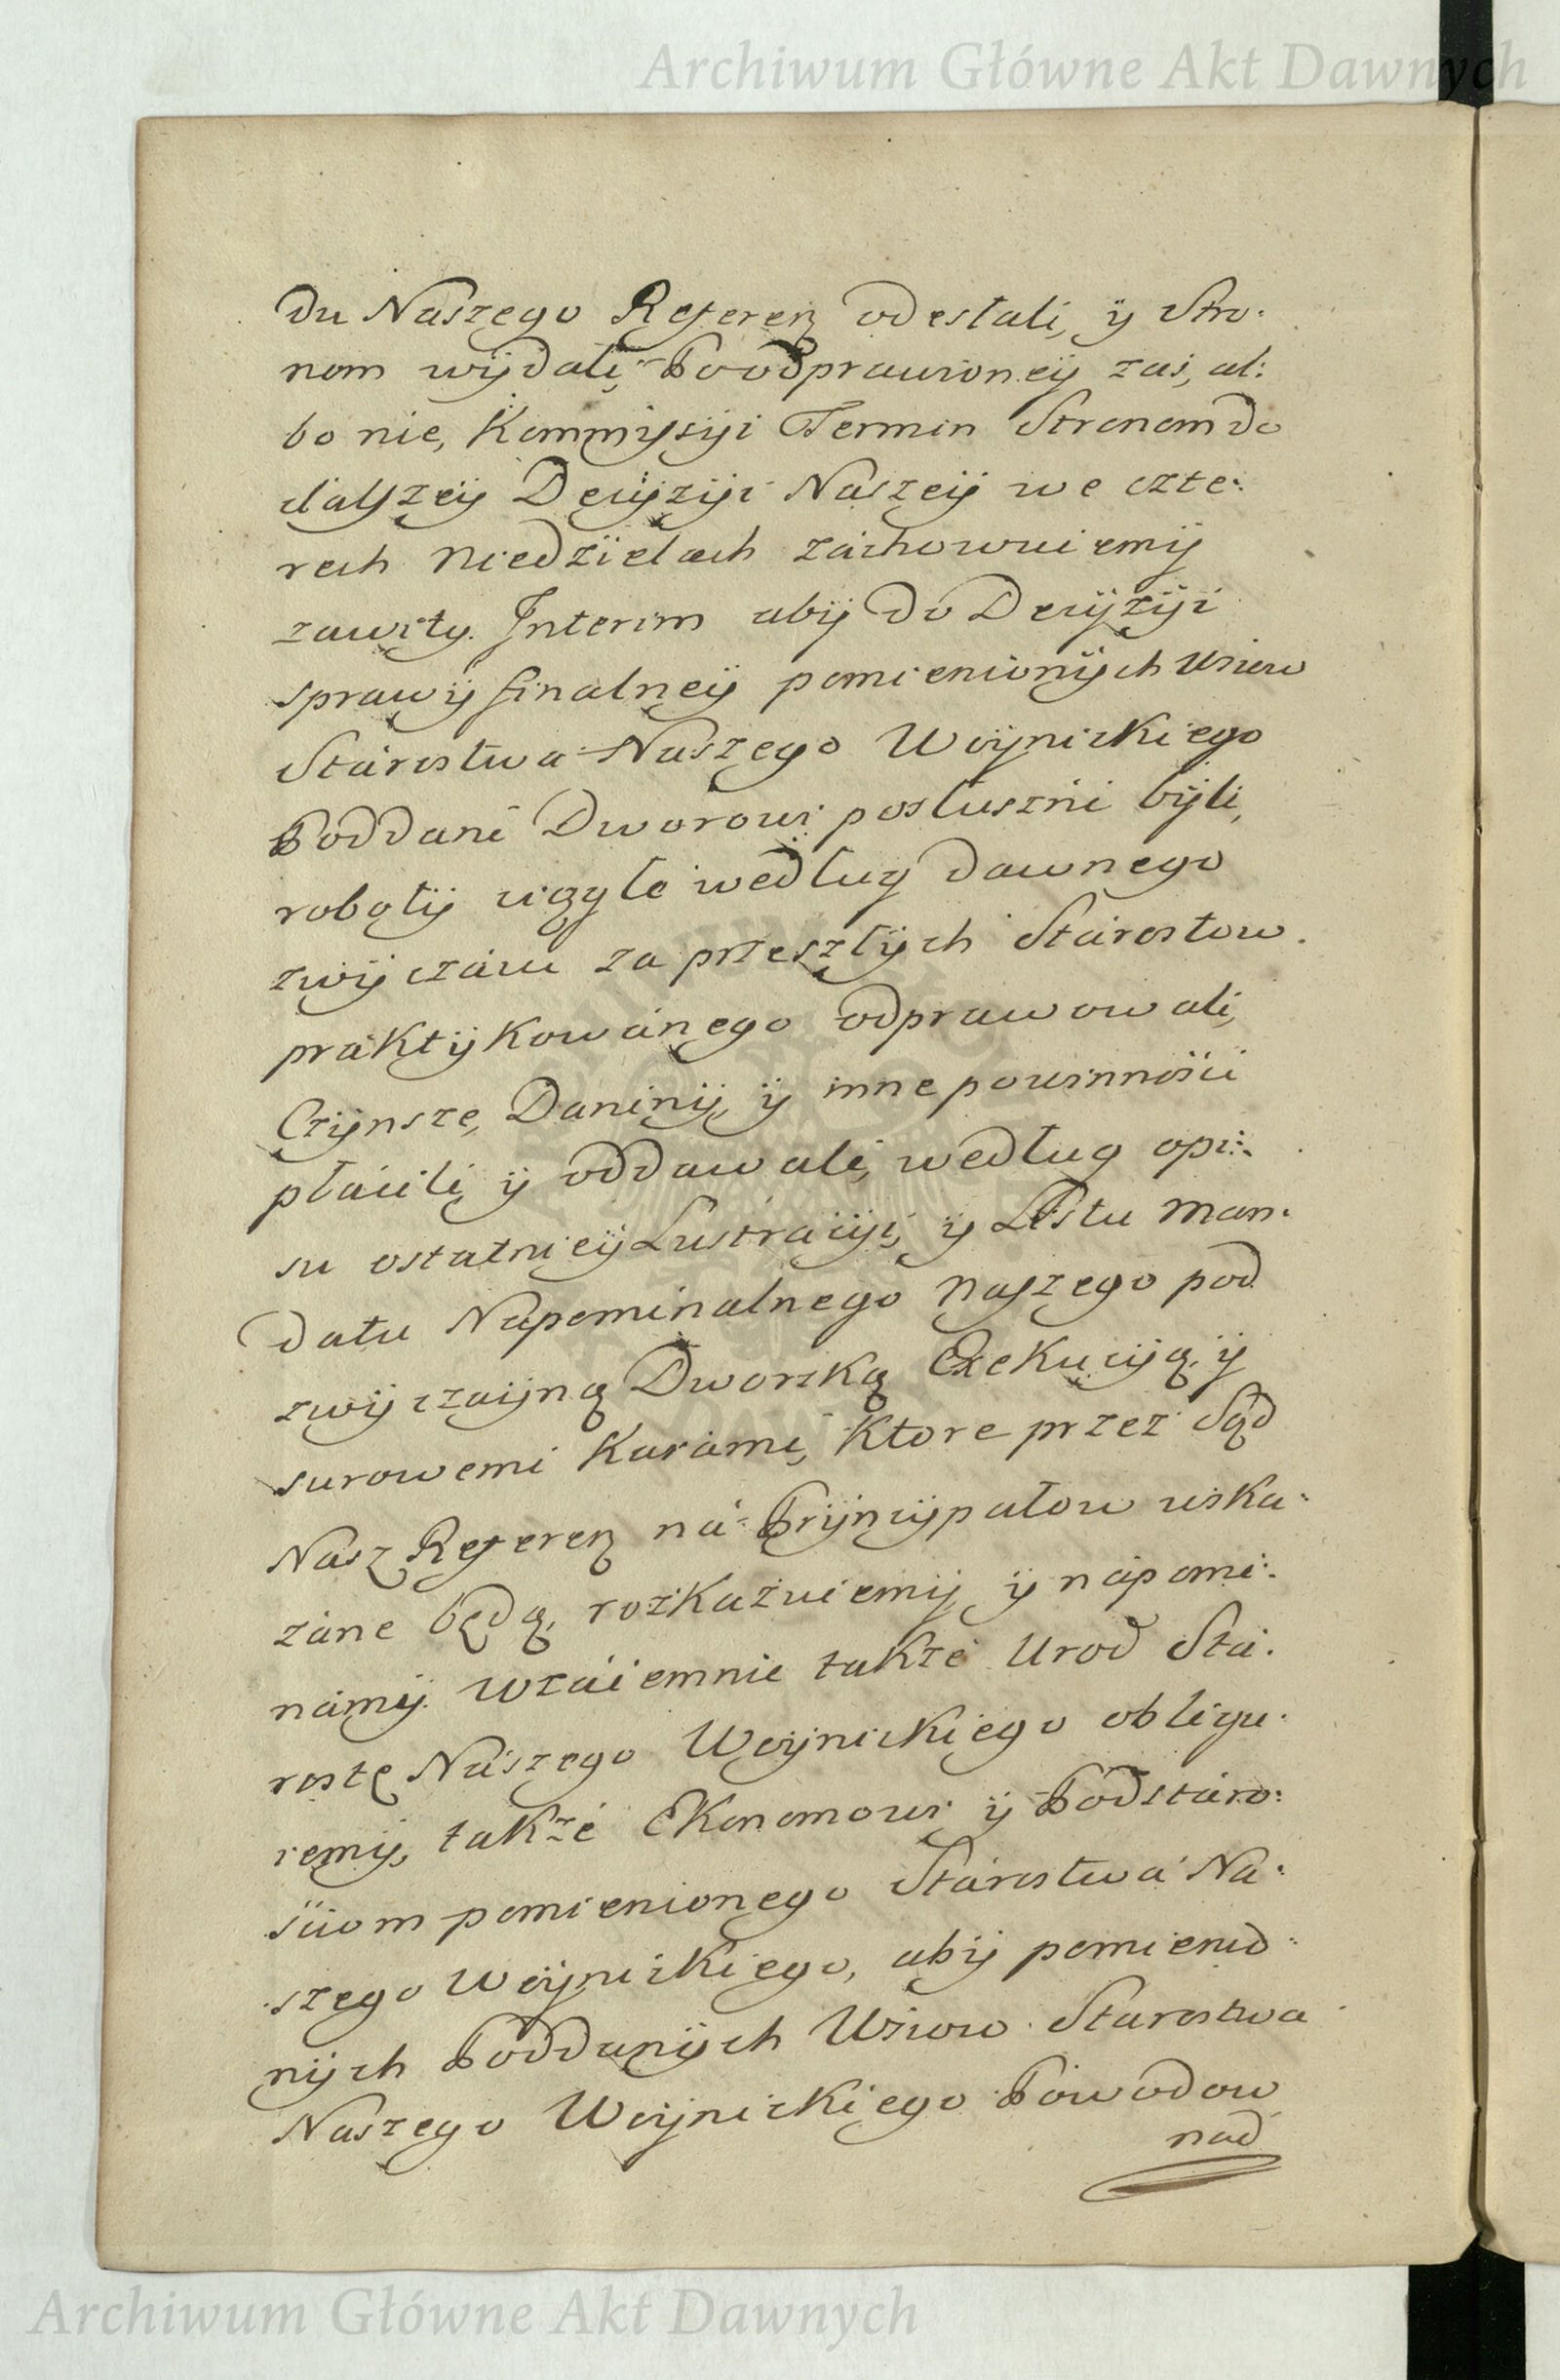 Archiwum Główne Akt Dawnych
du Naszego Referen odesłali, ÿ Stro:
nom wÿdali, Po odprawioneÿ zaś, al:
bo nie, Kommyssÿi Termin Stronom do
dalszeÿ Decÿzÿi Naszeÿ we czte:
rech Niedzielach zachowuiemÿ
zawity. Interim abÿ do Decÿzÿi
sprawÿ finalneÿ pomienionÿch Wsiow
Stárostwa Naszego Woÿnickiego
Poddani Dworowi posłuszni bÿli,
robotÿ ciągłe według dawnego
zwÿczáiu za przeszłÿch Stárostow
práktÿkowánego odprawowali,
Czÿnsze, Daninÿ, ÿ inne powinnośći
płáćili, ÿ oddawali, według opi:
su ostatnieÿ Lustrácÿi, ÿ Listu Man:
datu Napominalnego Naszego pod
zwÿczaÿną Dworską Exekucÿą, ÿ
surowemi Karámi, Ktore przez Sąd
Nász Referen ná Prÿncÿpałow wska:
záne będą, rozkazuiemÿ, ÿ nápomi:
námÿ. Wzáiemnie także Urod Stá:
rostę Nászego Woÿnickiego obligu:
iemÿ, także Ekonomowi ÿ Podstáro:
śćiom pomienionego Stárostwá Na:
szego Woÿnickiego, abÿ pomienio:
nÿch Poddanÿch Wsiow Starostwa
Naszego Woÿnickiego Powodow
nad
Archiwum Główne Akt Dawnych